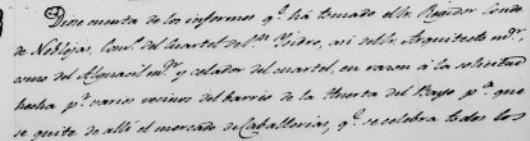 Diose cuenta de los informes q.e há tomado el Sr. Regidor Conde
de Noblejas, Com.o del Cuartel de Sn. Ysidro, asi del Sr. Arquitecto mor.
como del Alguacil mor. y celador del cuartel, en razon á la solicitud
hecha pr. varios vecinos del barrio de la Huerta del Bayo pa. que
se quite de allí el mercado de Caballerias, q.e se celebra todos los